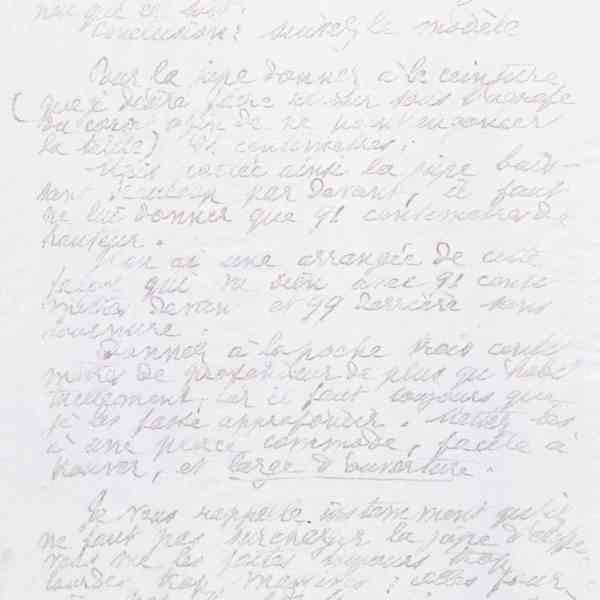 Conclusion: suivez le modèle
Pour la jupe donner à la ceinture
(que je désire faire sous
du corset afin de ne point engoncer
la taille) centimètres.
Mais portée ainsi la jupe bais-
sant par devant, il faut
ne lui donner que 91 centimètres de
hauteur.
J'en ai une arrangée de cette
façon qui va bien avec 91 centi-
mètres devant et 99 derrière sans
tournure.
Donnez à la poche trois centi-
mètres de profondeur de plus qu'
tuellement, car il faut toujours que
je les fasse approfondir. Mettez les
à une place commode, facile à
trouver, et large d'ouverture.
Je vous rappelle instamment qu'il
ne faut pas surcharger la jupe d'
vous me les faites toujours trop
lourdes trop massives; elles